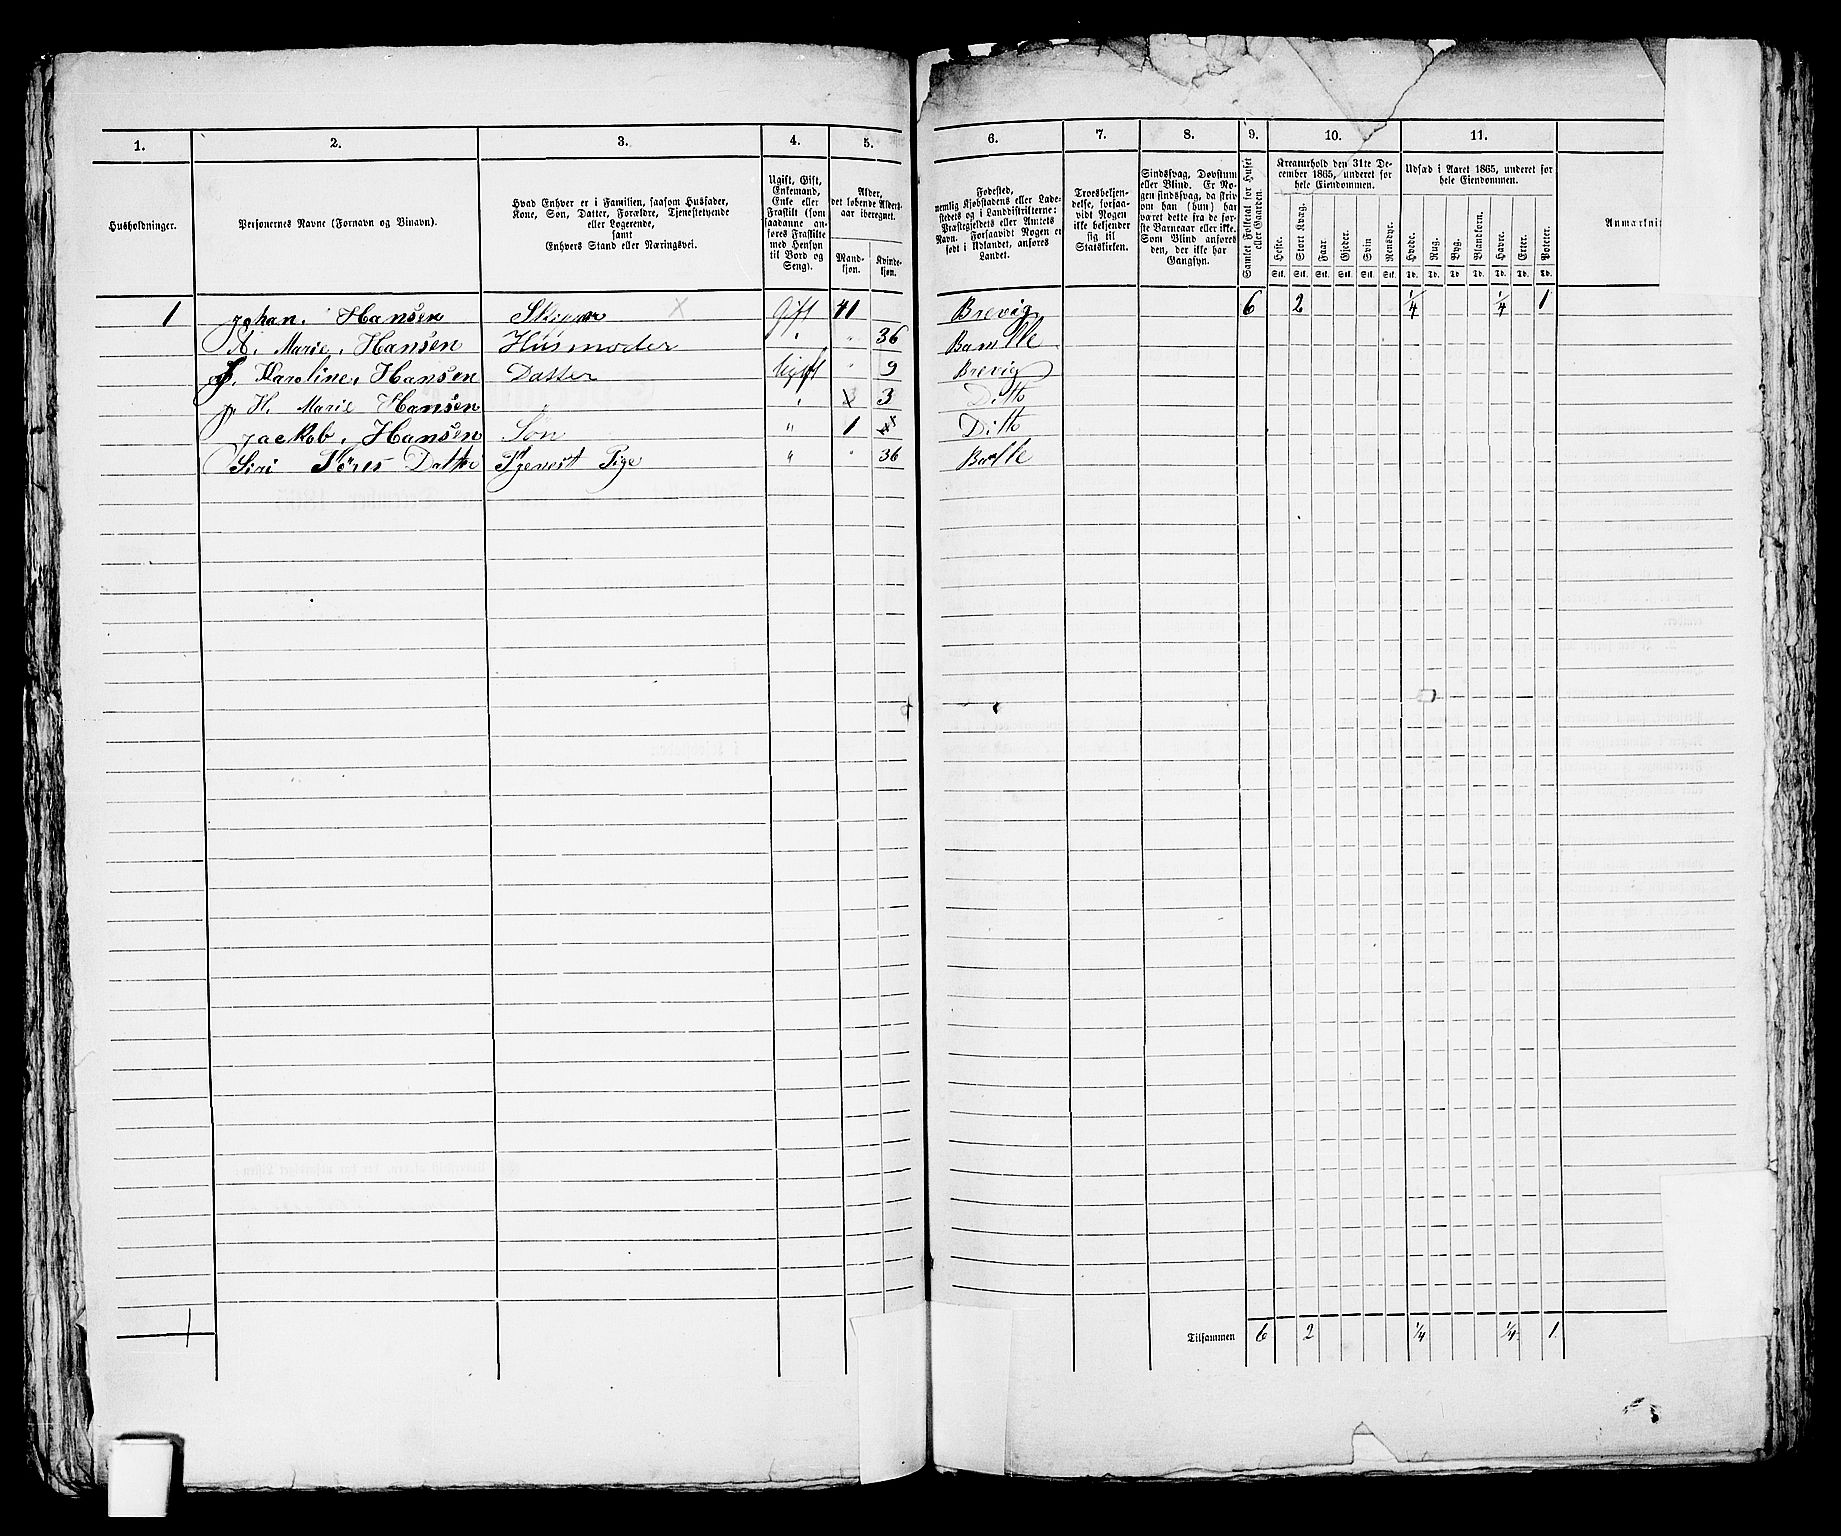 1. 2. 3. 4. 5. 6. 7. 8. 9. 10. 11.
Husholdninger.
Personernes Navne (Fornavn og Binavn).
Hvad Enhver er i Familien, saasom Husfader,
Kone, Søn, Datter, Forældre, Tjenestetyende
eller Logerende,
samt
Enhvers Stand eller Næringsvei.
Ugift, Gift,
Enkemand,
Enke eller
Fraskilt (som
saadanne an-
føres Fraskilte
med Hensyn
til Bord og
Seng).
Alder,
det løbende Alders-
aar iberegnet.
Mand-
kjøn.
Kvinde-
kjøn.
Fødested,
nemlig Kjøbstadens eller Lade-
stedets og i Landdistrikterne:
Præstegjeldets eller Amtets
Navn. Forsaavidt Nogen er
født i Udlandet, anføres
Landet.
Troesbekjen-
delse, forsaa-
vidt Nogen
ikke bekjender
sig til
Statskirken.
Sindssvag, Døvstum
eller Blind. Er No-
gen sindssvag, da skriv
om han (hun) har
været dette fra de før-
ste Barneaar eller ikke.
Som Blind anføres
den, der ikke har
Gangsyn.
Samlet Folketal for Huset
eller Gaarden.
Kreaturhold den 31te De-
cember 1865, underet for
hele Eiendommen.
Heste. Stort Kvæg. Faar. Gjeder. Svin Rensdyr.
Stk. Stk. Stk. Stk. Stk. Stk.
Udsæd i Aaret 1865, underet for
hele Eiendommen.
Hvede. Rug. Byg. Blandkorn. Havre. Erter. Poteter.
Td. Td. Td. Td. Td. Td. Td.
Anmærkni
1 Johan. Hansen Gift 41 Brevig 6 2 1/4 1/4 1
A. Marie. Hansen Husmoder " " 36 Bamble
Karoline. Hansen Datter Ugift " 9 Brevig
H. Marie Hansen " " 3 Ditto
Jackob. Hansen Søn " 1 Ditto
Siri Pige " " 36
1
Tilsammen 6 2 1/4 1/4 1